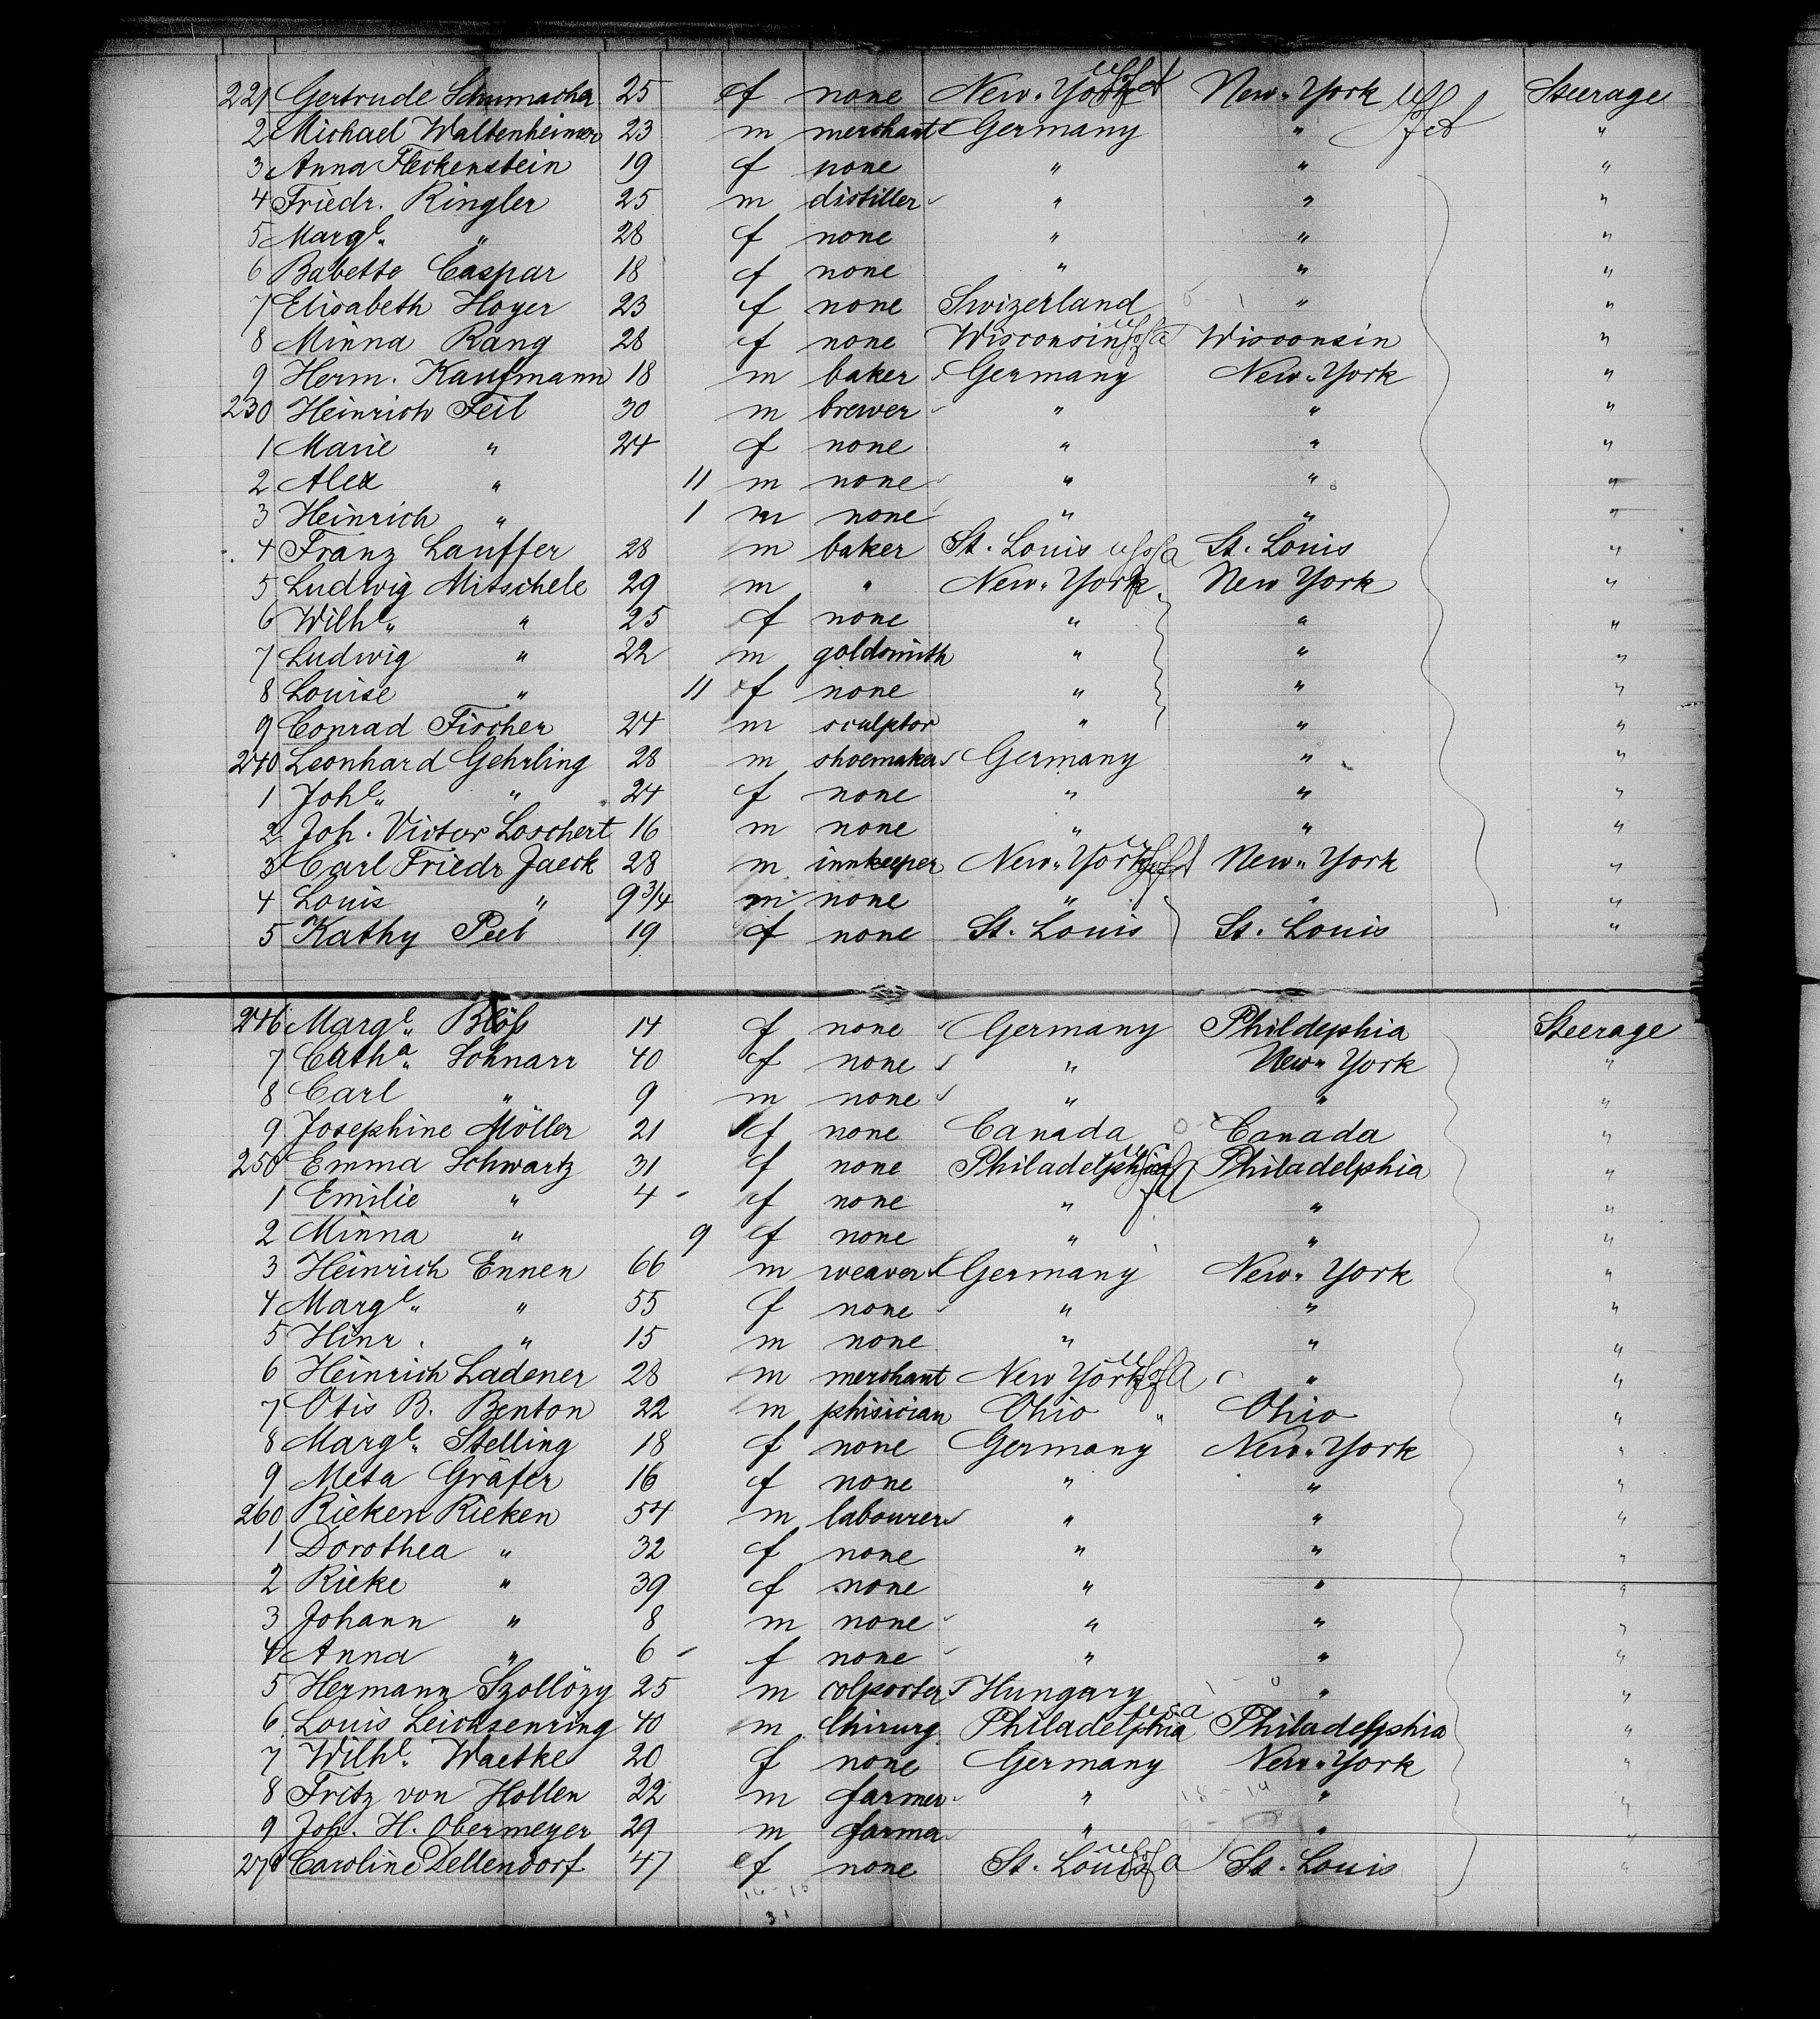 221 Gertrude Schumacher 25 f none New-York U S of A New-York U S of A Steerage
2 Michael Waltenheimer 23 m merchant Germany " "
3 Anna Fleckenstein 19 f none " " "
4 Friedr. Ringler 25 m distiller " " "
5 Margе " 28 f none " " "
6 Babette Caspar 18 f none " " "
7 Elisabeth Hoyer 23 f none Swizerland " "
8 Minna Rang 28 f none Wisconsin U S of A Wisconsin "
9 Herm. Kaufmann 18 m baker Germany New-York "
230 Heinrich Feil 30 m brewer " " "
1 Marie " 24 f none " " "
2 Alex " 11 m none " " "
3 Heinrich " 1 m none " " "
4 Franz Lauffer 28 m baker St. Louis U S of A St. Louis "
5 Ludwig Mitschele 29 m " New-York New York "
6 Wilhe " 25 f none " " "
7 Ludwig " 22 m goldsmith " " "
8 Louise " 11 f none " " "
9 Conrad Fischer 24 m sculptor " " "
240 Leonhard Gehrling 28 m shoemaker Germany " "
1 Johe " 24 f none " " "
2 Joh. Victor Loschert 16 m none " " "
3 Carl Friedr Jaeck 28 m innkeeper New-York U S of A New-York "
4 Louis " 9 3/4 m none " " "
5 Kathy Peeb 19 f none St. Louis St. Louis "
246 Marge Blöß 14 f none Germany Phildephia Steerage
7 Catha Schnarr 40 f none " New-York "
8 Carl " 9 m none " " "
9 Josephine Möller 21 f none Canada Canada "
250 Emma Schwartz 31 f none Philadelphia U S of A Philadelphia "
1 Emilie " 4 f none " " "
2 Minna " 9 f none " " "
3 Heinrich Ennen 66 m weaver Germany New-York "
4 Marge " 55 f none " " "
5 Hinr. " 15 m none " " "
6 Heinrich Ladener 28 m merchant New York U S of A " "
7 Otis B. Benton 22 m phisician Ohio " Ohio "
8 Marge Stelling 18 f none Germany New-York "
9 Meta Gräfer 16 f none " " "
260 Rieken Rieken 54 m labourer " " "
1 Dorothea " 32 f none " " "
2 Rieke " 39 f none " " "
3 Johann " 8 m none " " "
4 Anna " 6 f none " " "
5 Hermann Szollözy 25 m colporter Hungary " "
6 Louis Leichsenring 40 m Chirurg Philadelphia U S A Philadelphia "
7 Wilhe Waetke 20 f none Germany New-York "
8 Fritz von Hollen 22 m farmer " 18-14 " "
9 Joh. H. Obermeyer 29 m farmer " " "
270 Caroline Dellendorf 47 f none St. Louis U S of A St. Louis "
16-15
31